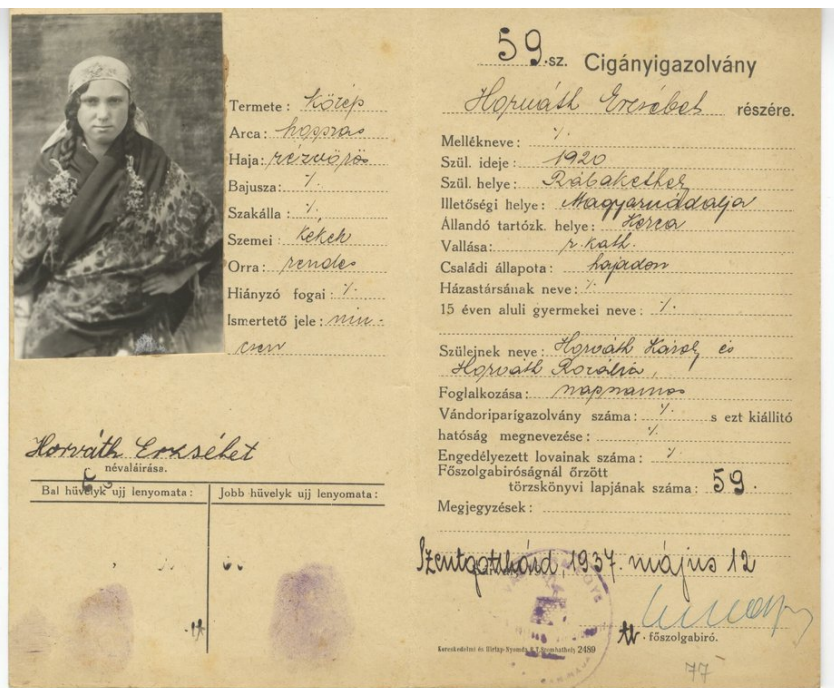 Termete: Közép
Arca: hosszas
Haja: rézvörös
Bajusza: ·/.
Szakálla: ·/.
Szemei: kékek
Orra: rendes
Hiányzó fogai: ·/.
Ismertető jele: nin-
csen
Horváth Erzsébet
névaláírása.
Bal hüvelyk ujj lenyomata: Jobb hüvelyk ujj lenyomata:
59.sz. Cigányigazolvány
Horváth Erzsébet részére.
Mellékneve: ·/.
Szül. ideje: 1920
Szül. helye: Rábakethely
Illetőségi helye: Magyarnádalja
Állandó tartózk. helye:
Vallása: r. kath.
Családi állapota: hajadon
Házastársának neve: ·/.
15 éven aluli gyermekei neve: ·/.
Szüleinek neve: Horváth Károly és
Horváth Rozália,
Foglalkozása: napszámos
Vándoriparigazolvány száma: ·/. s ezt kiállitó
hatóság megnevezése: ·/.
Engedélyezett lovainak száma: ·/.
Főszolgabiróságnál őrzött
törzskönyvi lapjának száma: 59.
Megjegyzések:
Szentgotthárd, 1937. május 12
főszolgabiró.
Kereskedelmi és Hirlap-Nyomda R.T. Szombathely 2489
77